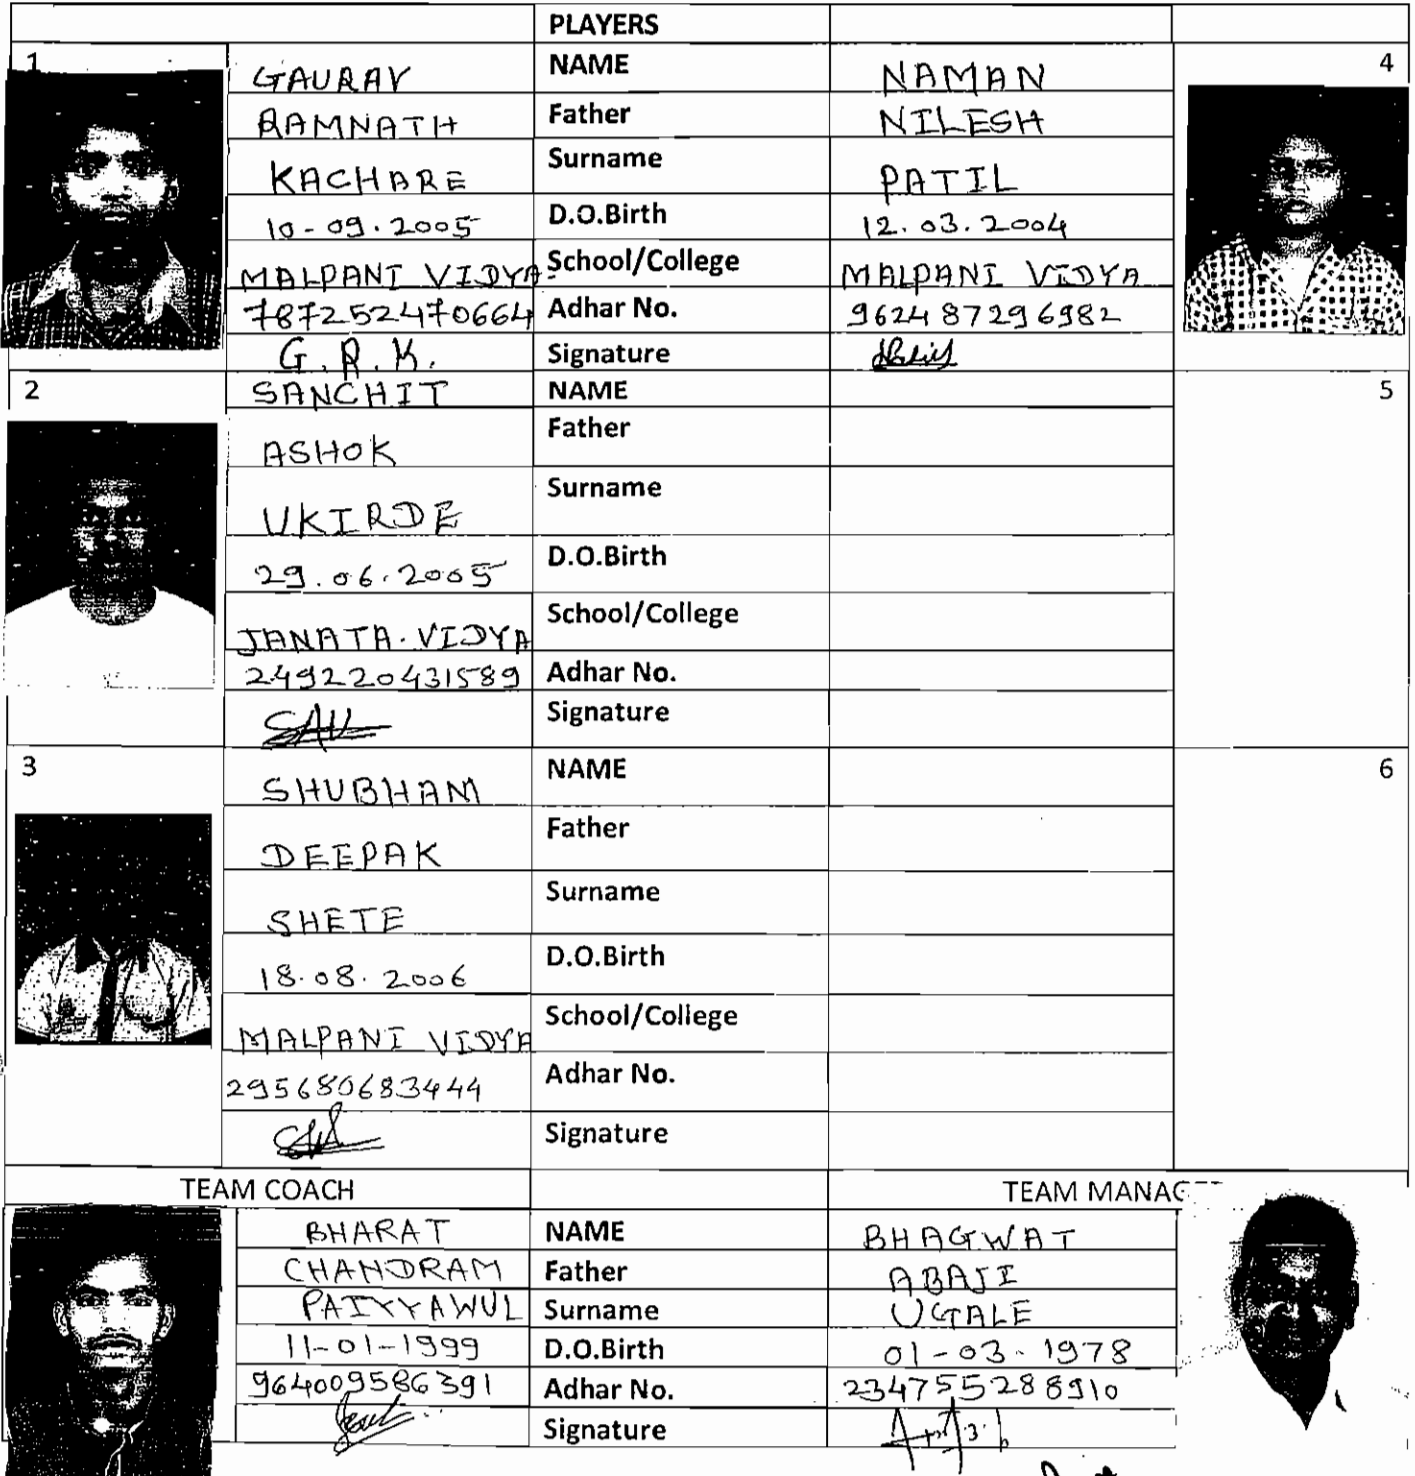 PLAYERS
1 GAURAV NAME NAMAN 4
RAMNATH Father NILESH
KACHARE Surname PATIL
10-09.2005 D.O.Birth 12.03.2004
MALPANI VIDYA- School/College MALPANI VIDYA
787252470664 Adhar No. 962487296982
G.R.K. Signature
2 SANCHIT NAME 5
ASHOK Father
UKIRDE Surname
29.06.2005 D.O.Birth
JANATA. VIDYA School/College
249220431589 Adhar No.
Signature
3 SHUBHAM NAME 6
DEEPAK Father
SHETE Surname
18.08.2006 D.O.Birth
MALPANI VIDYA School/College
295680683444 Adhar No.
Signature
TEAM COACH TEAM MANAG
BHARAT NAME BHAGWAT
CHANDRAM Father ABAJI
PAIYYAWUL Surname UGALE
11-01-1999 D.O.Birth 01-03-1978
964009586391 Adhar No. 234755288910
Signature